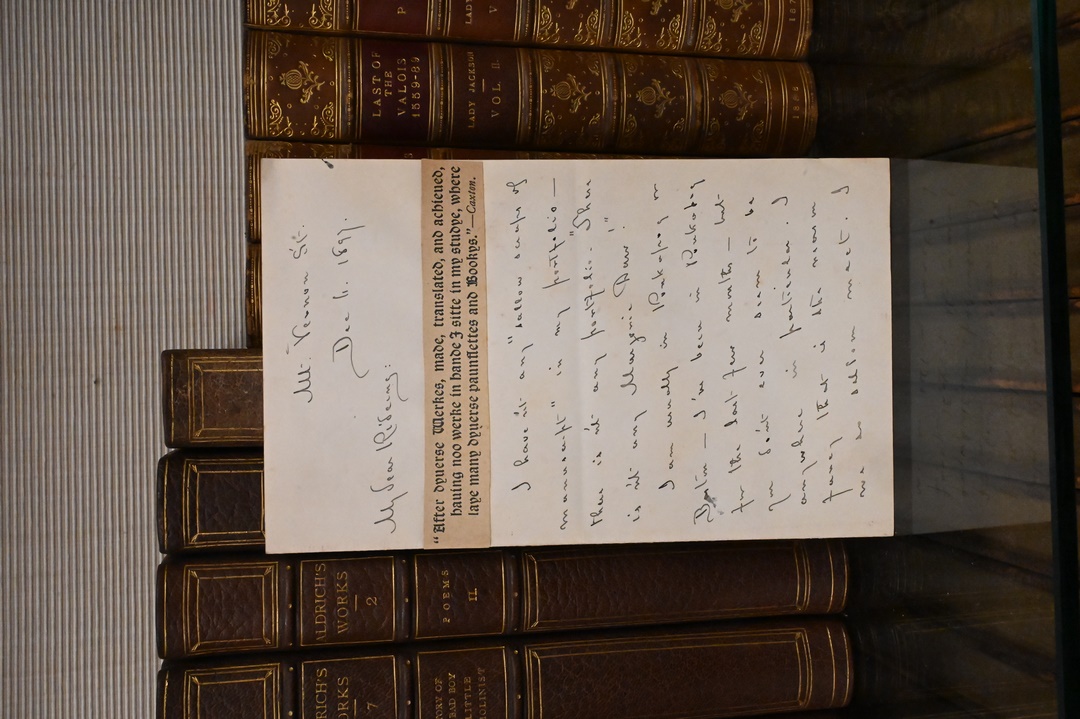 LAST OF
THE
VALOIS
1559-89
LADY JACKSON
VOL. II.
1886
P
LADY
V
187
Mt. Vernon St.
Dec 1897.
My dear Rideing:
"After dyuerse Werkes, made, translated, and achieued,
hauing noo werke in hande I sitte in my studye, where
laye many dyuerse paunflettes and Bookys."—Caxton.
I have n't any "sallow scraps of
manuscript" in my portfolio —
there is n't any portfolio. "There
is n't any Marjorie Daw!"
I am usually in Ponkapog or
Boston — I've been in Ponkapog
for the last few months — but
you don't ever seem to be
anywhere in particular. I
fancy that is the reason
we so seldom meet. I
ALDRICH'S
WORKS
2
POEMS
II.
RICH'S
ORKS
7
TORY OF
BAD BOY
LITTLE
OLINIST